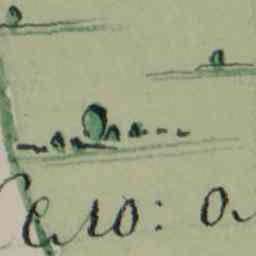 Село: о